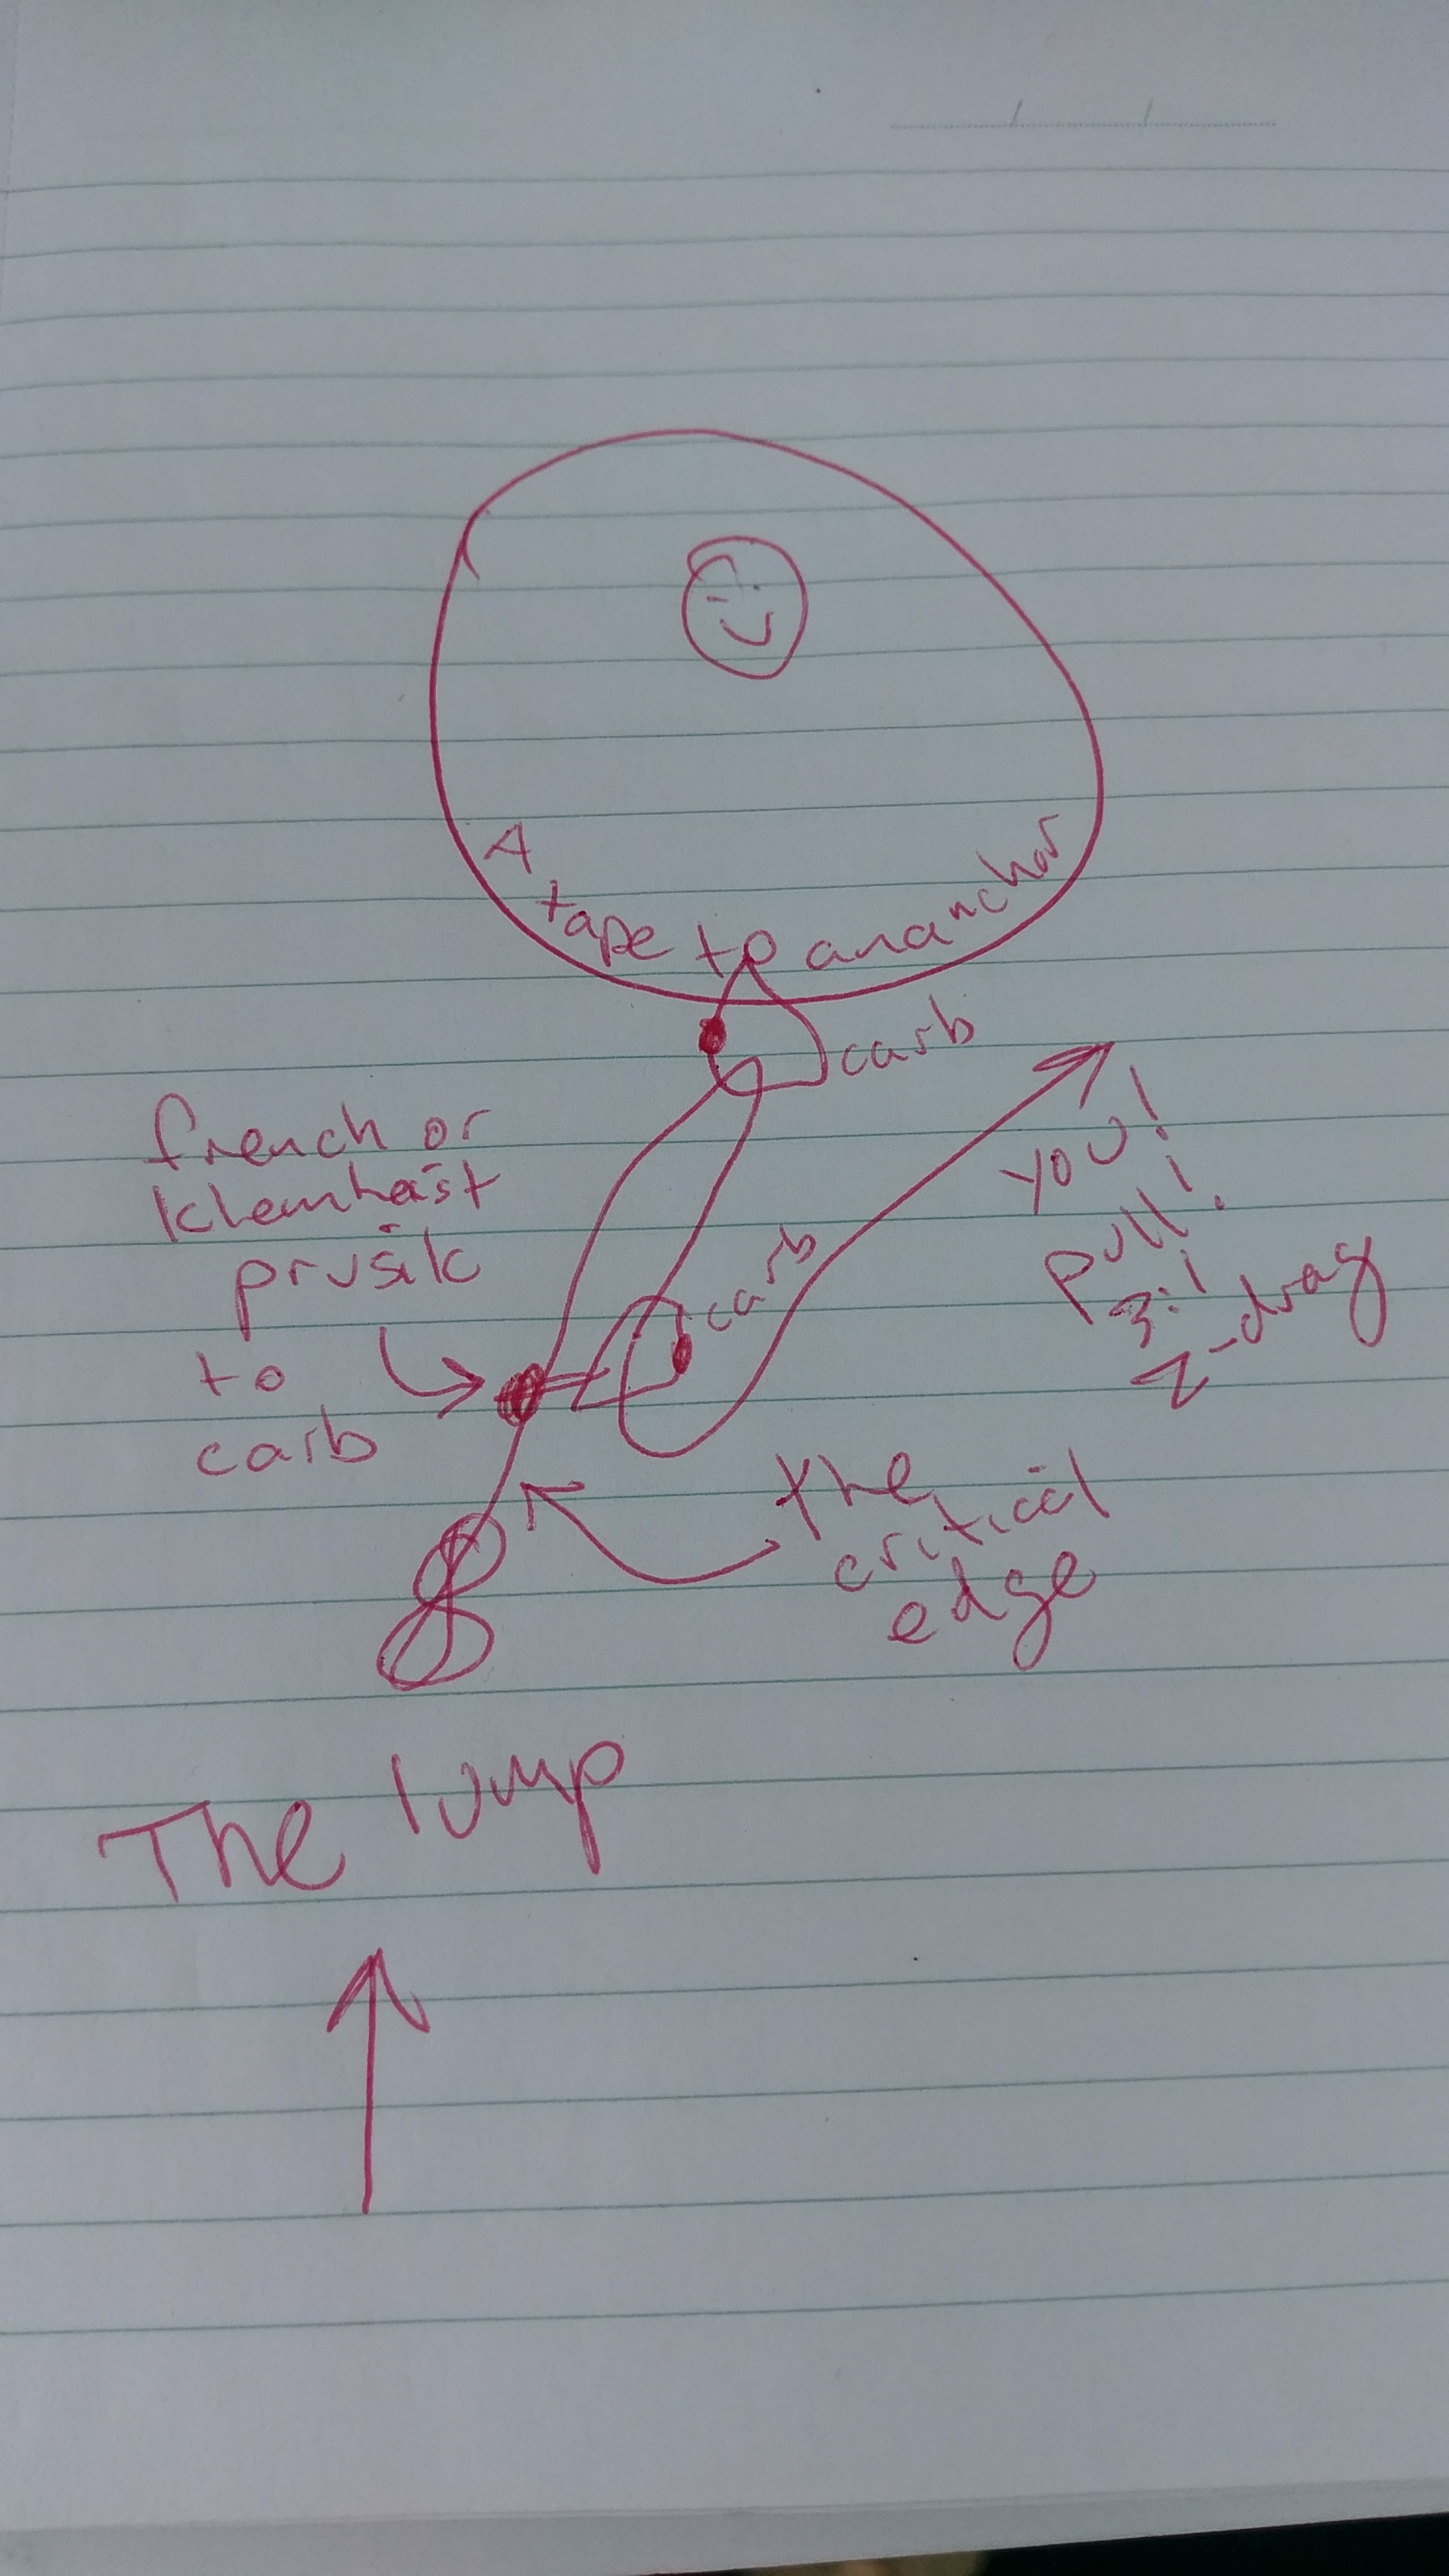 A tape to an anchor
carb
french or
klemheist
prusik
to
carb
carb
you!
pull!
3:1
Z-drag
the
critical
edge
The lump